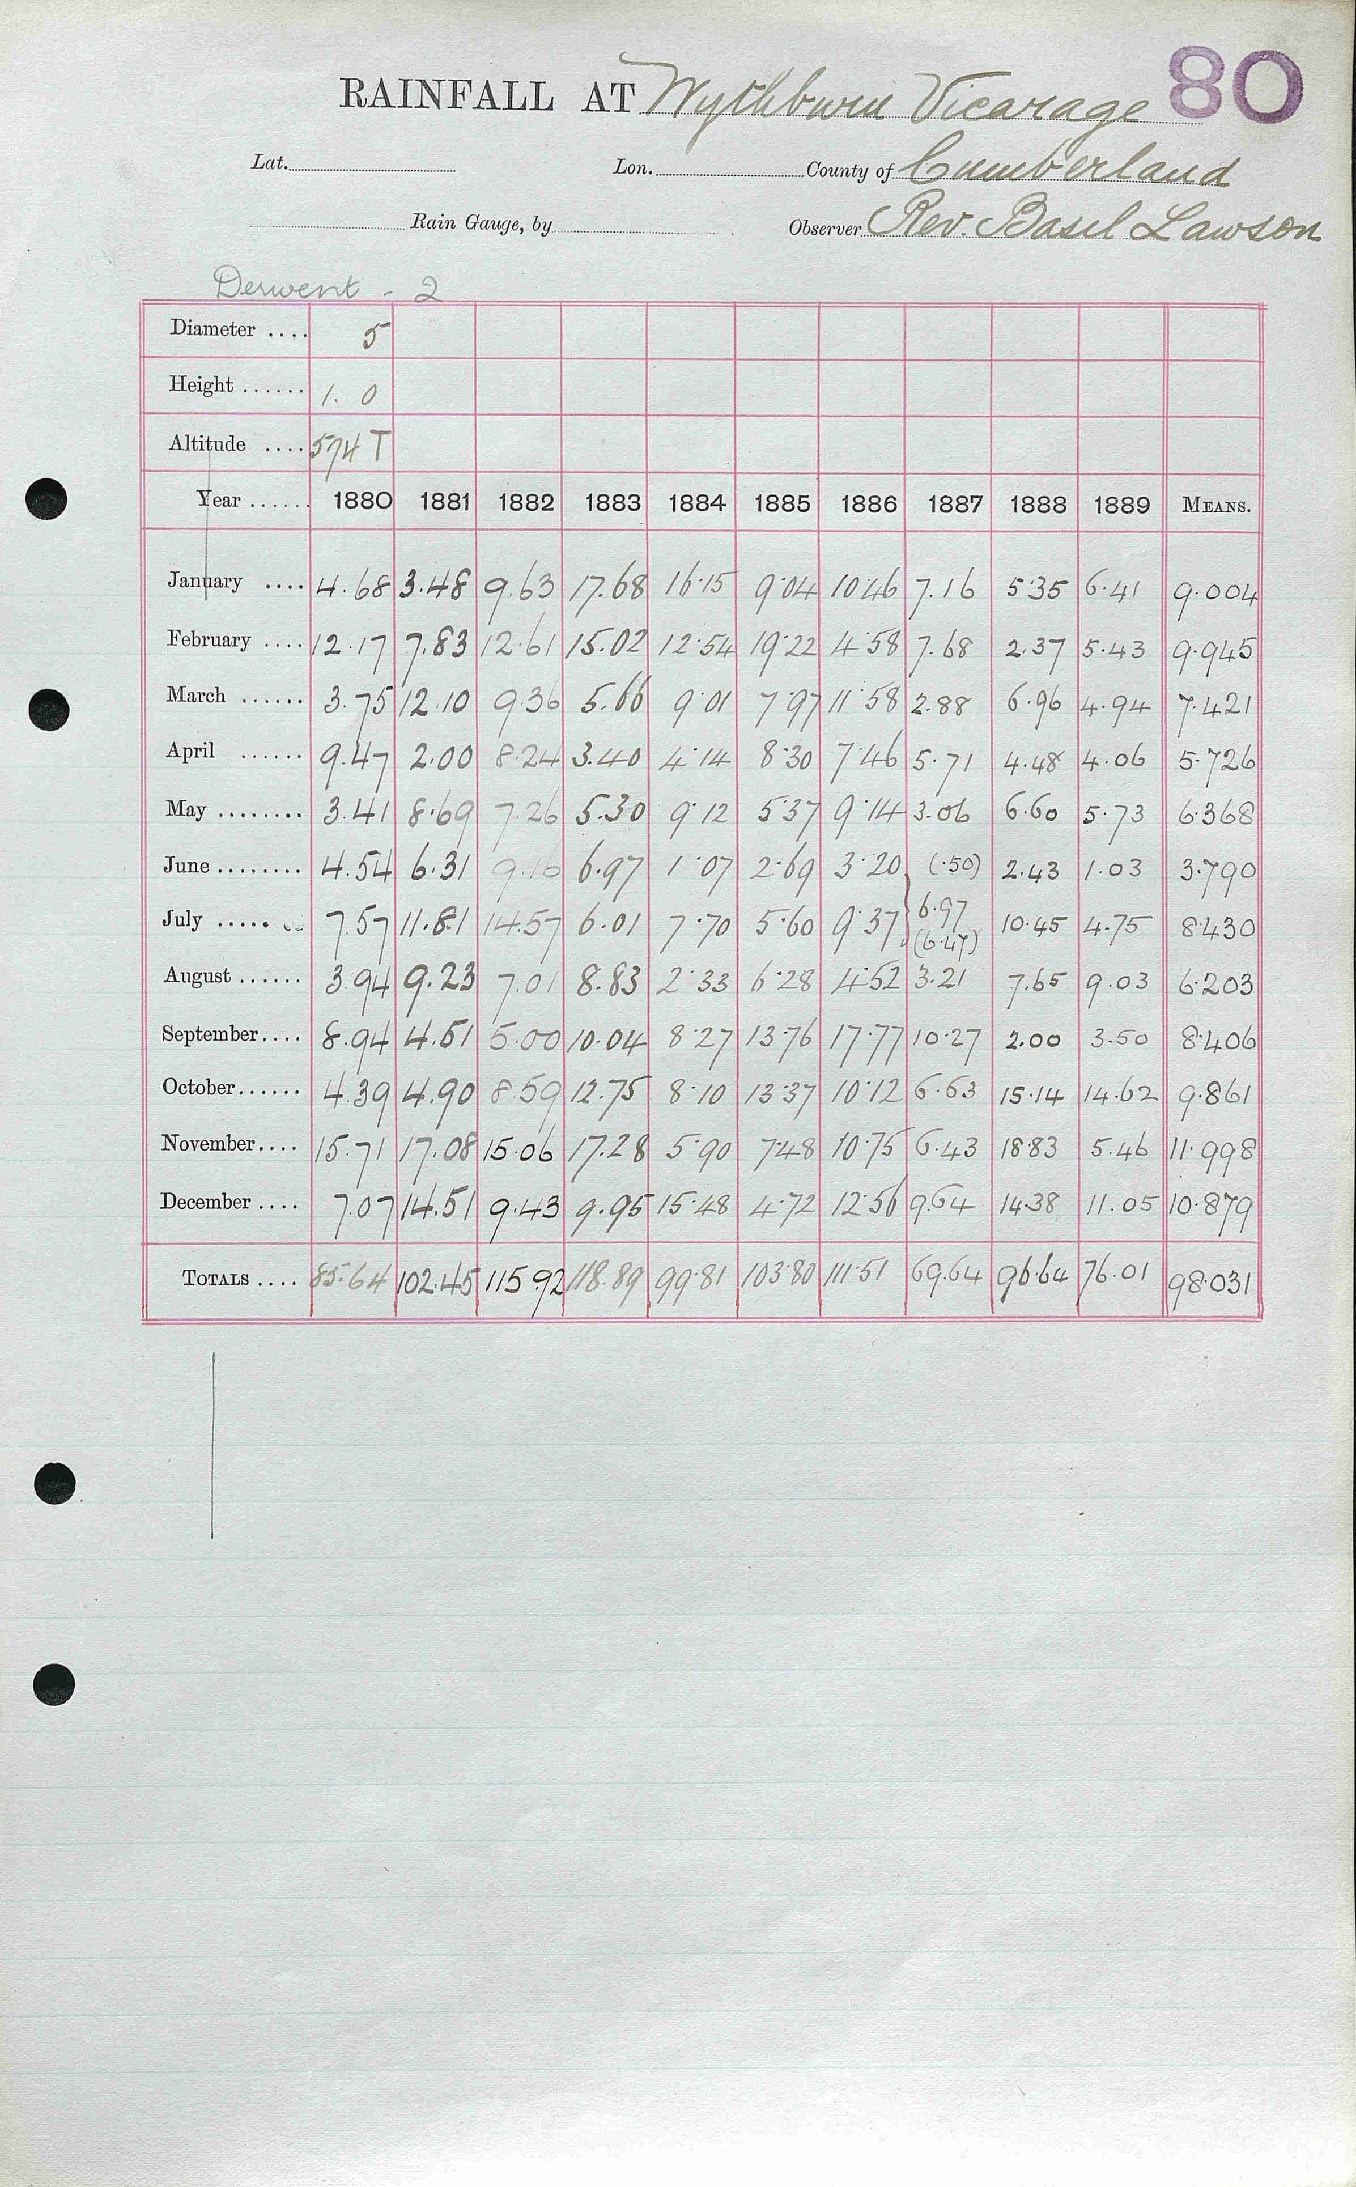 80
RAINFALL AT Wythburn Vicarage
Lat. Lon. County of Cumberland
Rain Gauge, by Observer Rev. Basil Lawson
Derwent - 2
Diameter .... 5
Height ...... 1. 0
Altitude .... 574 T
Year ...... 1880 1881 1882 1883 1884 1885 1886 1887 1888 1889 MEANS.
January .... 4.68 3.48 9.63 17.68 16.15 9.04 10.46 7.16 5.35 6.41 9.004
February .... 12.17 7.83 12.61 15.02 12.54 19.22 4.58 7.68 2.37 5.43 9.945
March ...... 3.75 12.10 9.36 5.66 9.01 7.97 11.58 2.88 6.96 4.94 7.421
April ...... 9.47 2.00 8.24 3.40 4.14 8.30 7.46 5.71 4.48 4.06 5.726
May ........ 3.41 8.69 7.26 5.30 9.12 5.37 9.14 3.06 6.60 5.73 6.368
June ........ 4.54 6.31 9.16 6.97 1.07 2.69 3.20 (.50) 2.43 1.03 3.790
July ..... 7.57 11.81 14.57 6.01 7.70 5.60 9.37 6.97 (6.47) 10.45 4.75 8.430
August ...... 3.94 9.23 7.01 8.83 2.33 6.28 4.52 3.21 7.65 9.03 6.203
September.... 8.94 4.51 5.00 10.04 8.27 13.76 17.77 10.27 2.00 3.50 8.406
October...... 4.39 4.90 8.59 12.75 8.10 13.37 10.12 6.63 15.14 14.62 9.861
November.... 15.71 17.08 15.06 17.28 5.90 7.48 10.75 6.43 18.83 5.46 11.998
December .... 7.07 14.51 9.43 9.95 15.48 4.72 12.56 9.64 14.38 11.05 10.879
TOTALS .... 85.64 102.45 115.92 118.89 99.81 103.80 111.51 69.64 96.64 76.01 98.031